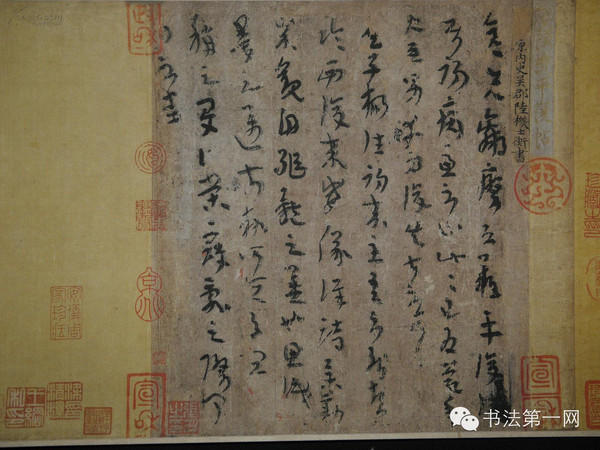 原內史吳郡陸機士衡書
彦先羸瘵恐難平復
往屬初病慮不止此此已為慶承
使唯男幸為復失前憂耳吳
子楊往初來主吾不能盡
臨西復來威儀詳跱舉動
成觀自軀體之美也思識
量之邁前執所恒有宜
稱之夏伯榮寇亂之際聞
問不悉
宣和
政和
安儀周家珍藏
书法第一网